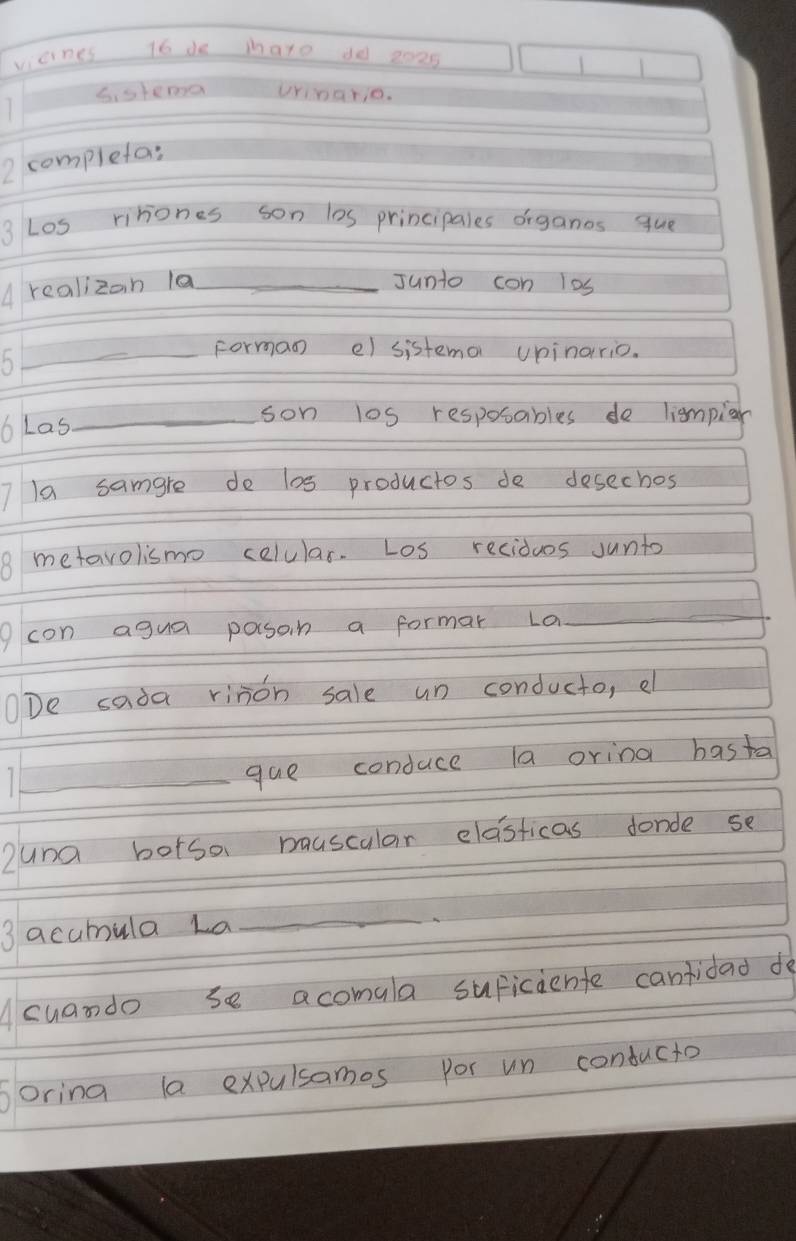 vicines 16 de mayo del 2025
1 sistema urinario.
2 completa:
3 Los riñones son los principales órganos que
4 realizan la ________ junto con los
5 ________ forman el sistema urinario.
6 Las ________ son los resposables de liempiar
7 la samgre de los productos de desechos
8 metavolismo celular. Los reciduos junto
9 con agua pasan a formar La ________
0 De cada riñón sale un conducto, el
1 ________ que conduce la orina hasta
2 una borsa muscular elásticas donde se
3 acumula La ________.
4 cuando se acomula suficiente cantidad de
5 orina la expulsamos por un conducto